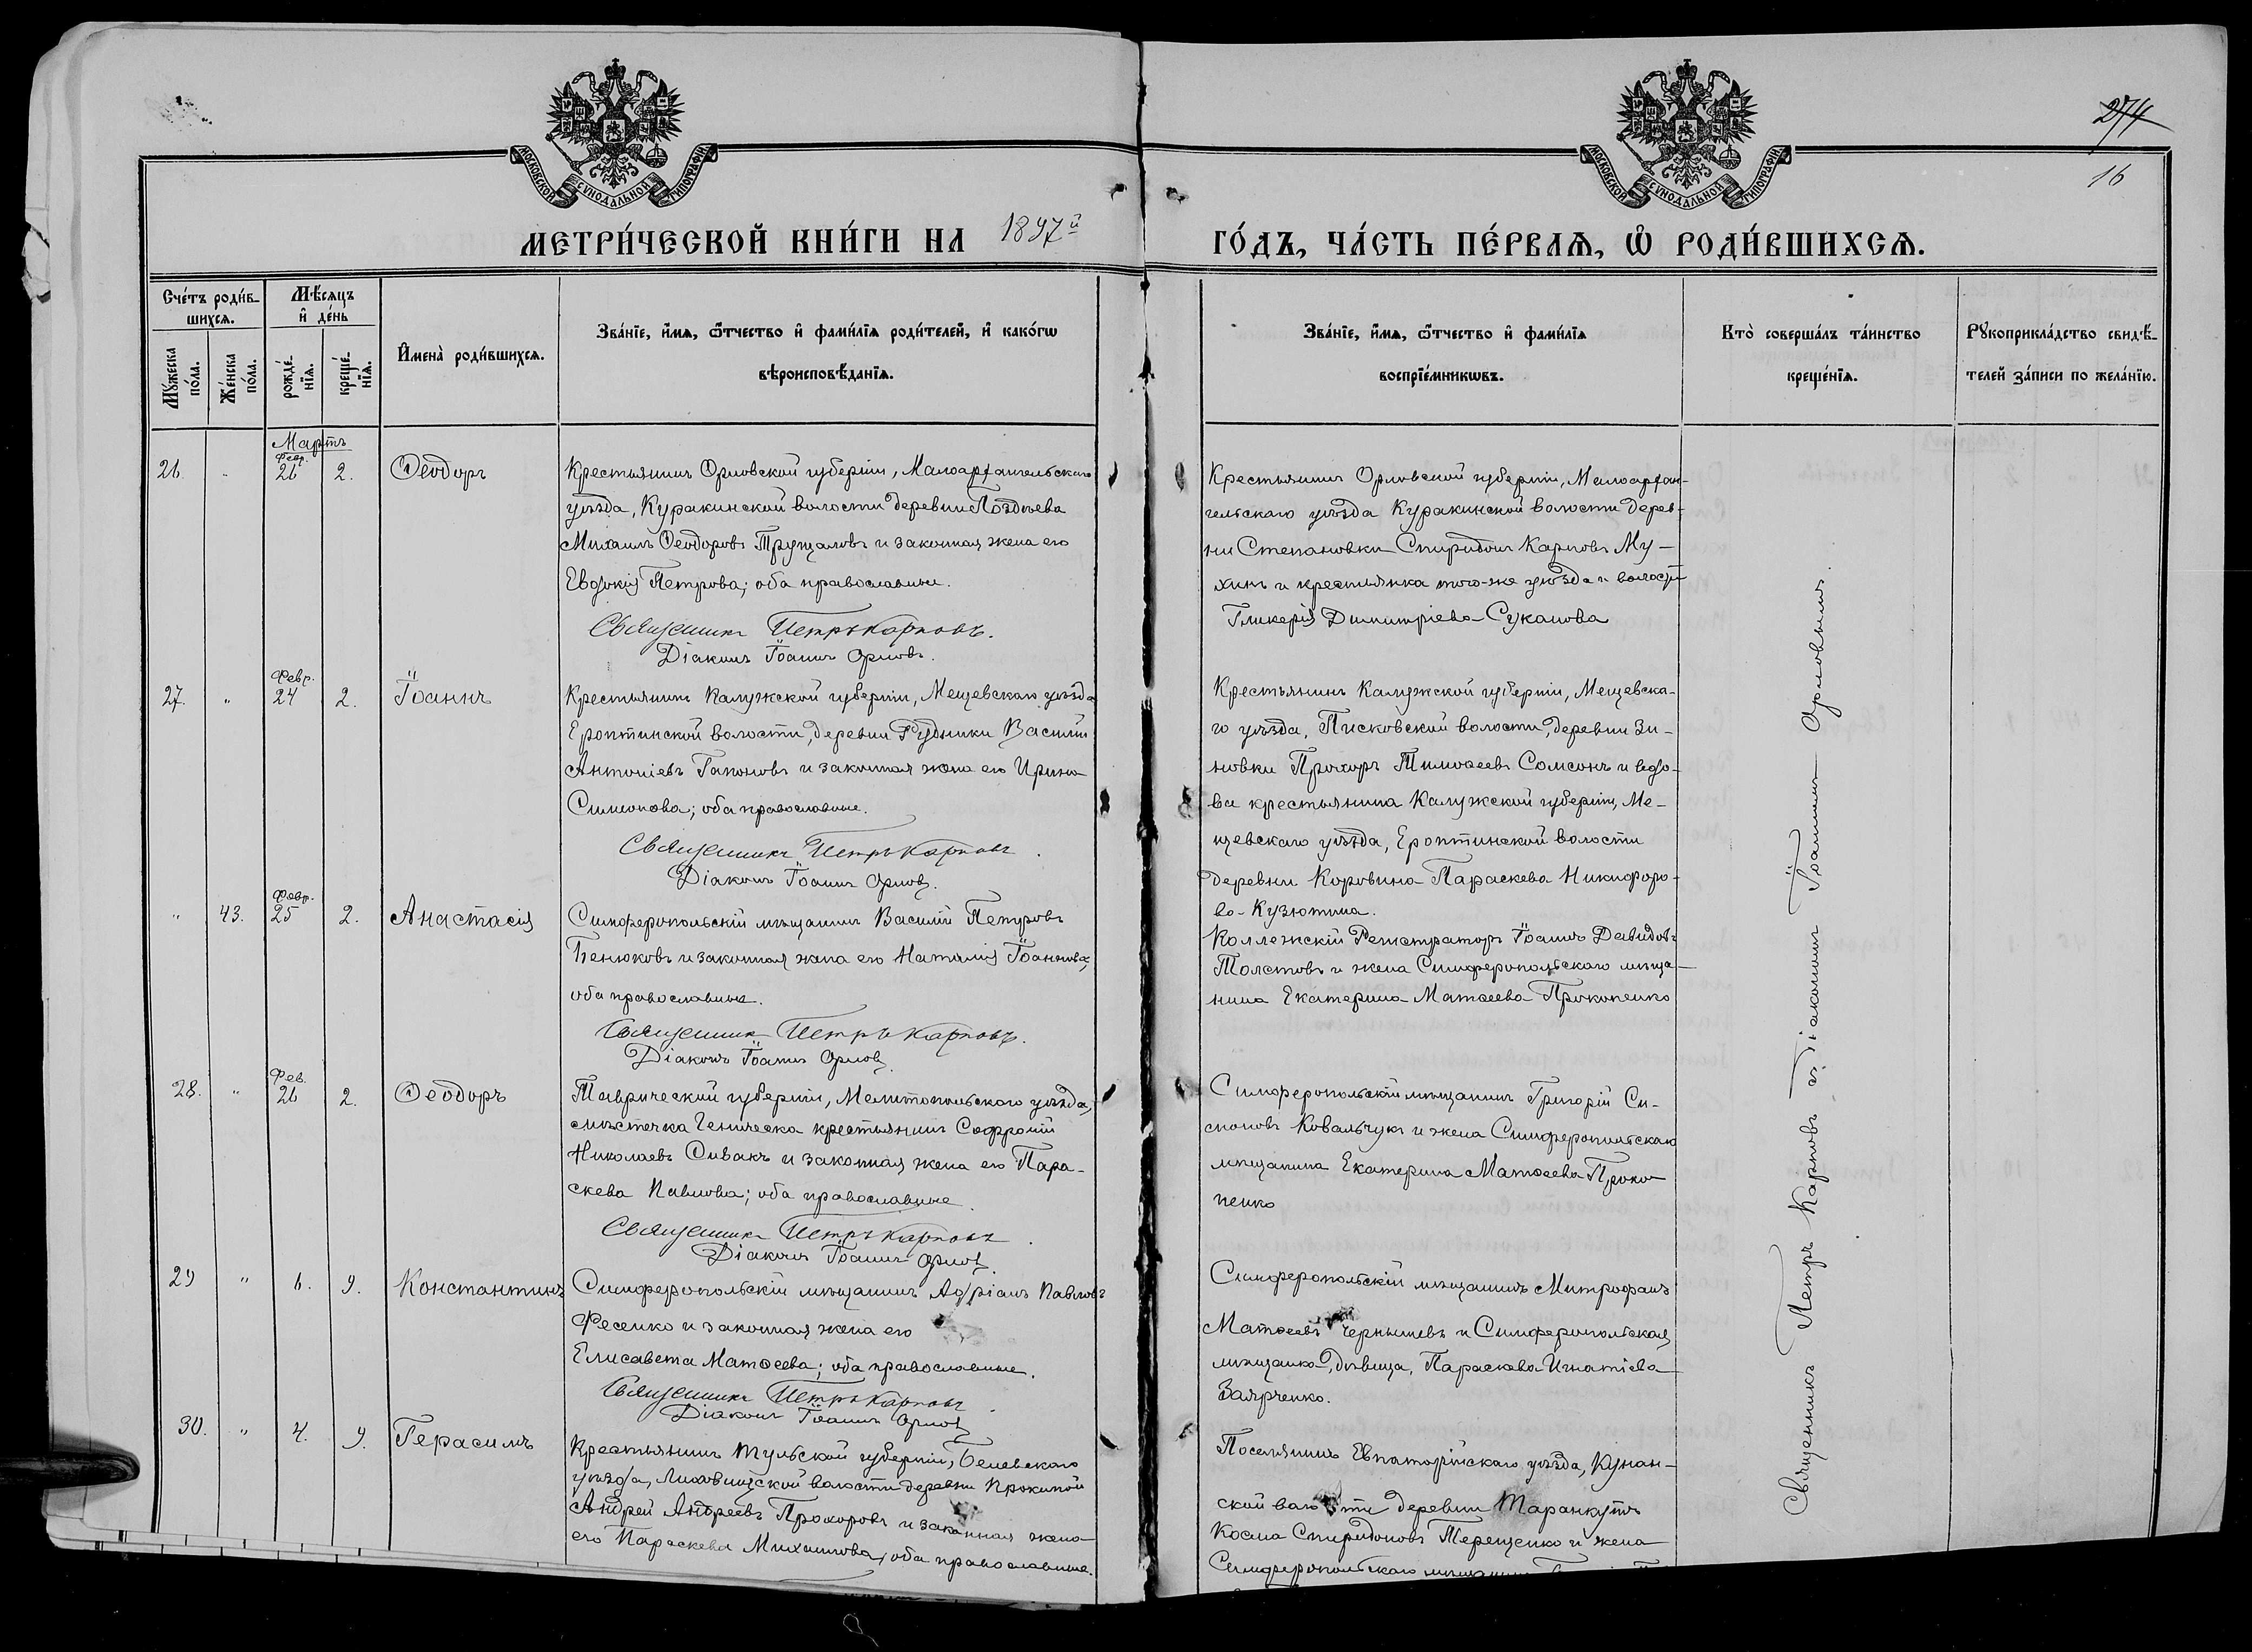 МОСКОВСКОЙ СУНОДАЛЬНОЙ ТИПОГРАФІИ
МОСКОВСКОЙ СУНОДАЛЬНОЙ ТИПОГРАФІИ
274
16
МЕТРИ́ЧЕСКОЙ КНИ́ГИ НА 1897й ГО́ДЪ, ЧА́СТЬ ПЕ́РВАѦ, Ѡ҆ РОДИ́ВШИХСѦ.
Сче́тъ роди́в-
шихсѧ.
Мѣ́сѧцъ
и҆ де́нь
Мꙋ́жеска
по́ла.
Же́нска
по́ла.
рожде́-
нїѧ.
креще́-
нїѧ.
И҆мена̀ роди́вшихсѧ.
Зва́нїе, и҆́мѧ, ѻ҆́тчество и҆ фами́лїѧ роди́телей, и҆ како́гѡ
вѣроисповѣ́данїѧ.
Зва́нїе, и҆́мѧ, ѻ҆́тчество и҆ фами́лїѧ
воспрїе́мникѡвъ.
Кто̀ соверша́лъ та́инство
креще́нїѧ.
Рꙋкоприкла́дство свидѣ́-
телей за́писи по жела́нїю.
Мартъ
Февр.
26. " 26 2. Ѳеодоръ
Крестьянинъ Орловской губерніи, Малоархангельскаго
уѣзда, Куракинской волости деревни Поздѣева
Михаилъ Ѳеодоровъ Трущаловъ и законная жена его
Евдокія Петрова; оба православные.
Священникъ Петръ Карповъ.
Діаконъ Іоаннъ Орловъ.
Крестьянинъ Орловской губерніи, Малоархан-
гельскаго уѣзда Куракинской волости дерев-
ни Степановки Спиридонъ Карповъ Му-
хинъ и крестьянка того-же уѣзда и волости
Гликерія Димитріева Суканова
Февр.
27. " 24 2. Іоаннъ
Крестьянинъ Калужской губерніи, Мещевскаго уѣзда
Ероптинской волости, деревни Рудники Василій
Антоніевъ Гапоновъ и законная жена его Ирина
Симеонова; оба православные.
Священникъ Петръ Карповъ.
Діаконъ Іоаннъ Орловъ.
Крестьянинъ Калужской губерніи, Мещевска-
го уѣзда, Писковской волости, деревни Зи-
новки Прохоръ Тимоѳеевъ Сомсонъ и вдо-
ва крестьянина Калужской губерніи, Ме-
щевскаго уѣзда, Ероптинской волости
деревни Коровина Параскева Никифоро-
ва Кузютина.
Февр.
" 43. 25 2. Анастасія
Симферопольскій мѣщанинъ Василій Петровъ
Бенюковъ и законная жена его Наталія Іоаннова,
оба православные.
Священникъ Петръ Карповъ.
Діаконъ Іоаннъ Орловъ.
Коллежскій Регистраторъ Іоаннъ Давидовъ
Толстовъ и жена Симферопольскаго мѣща-
нина Екатерина Матѳеева Прокопенко
Фев.
28. " 26 2. Ѳеодоръ
Таврической губерніи, Мелитопольскаго уѣзда,
мѣстечка Геническа крестьянинъ Софроній
Николаевъ Сивакъ и законная жена его Пара-
скева Павлова; оба православные.
Священникъ Петръ Карповъ.
Діаконъ Іоаннъ Орловъ.
Симферопольскій мѣщанинъ Григорій Си-
моновъ Ковальчукъ и жена Симферопольскаго
мѣщанина Екатерина Матѳеева Проко-
пенко
29 " 1. 9. Константинъ
Симферопольскій мѣщанинъ Адріанъ Павловъ
Фесенко и законная жена его
Елисавета Матѳеева; оба православные.
Священникъ Петръ Карповъ.
Діаконъ Іоаннъ Орловъ
Симферопольскій мѣщанинъ Митрофанъ
Матѳеевъ Чернышевъ и Симферопольская
мѣщанка, дѣвица, Параскева Игнатіева
Заярченко.
30. " 4. 9. Герасимъ
Крестьянинъ Тульской губерніи, Белевскаго
уѣзда, волости деревни
Андрей Андреевъ Прохоровъ и законная жена
его Параскева Михаилова, оба православные.
Поселянинъ Евпаторійскаго уѣзда, Кунан-
ской волости деревни Таранкутъ
Косма Спиридоновъ Терещенко и жена
Симферопольскаго мѣщанина
Священникъ Петръ Карповъ съ Діакономъ Іоанномъ Орловымъ.